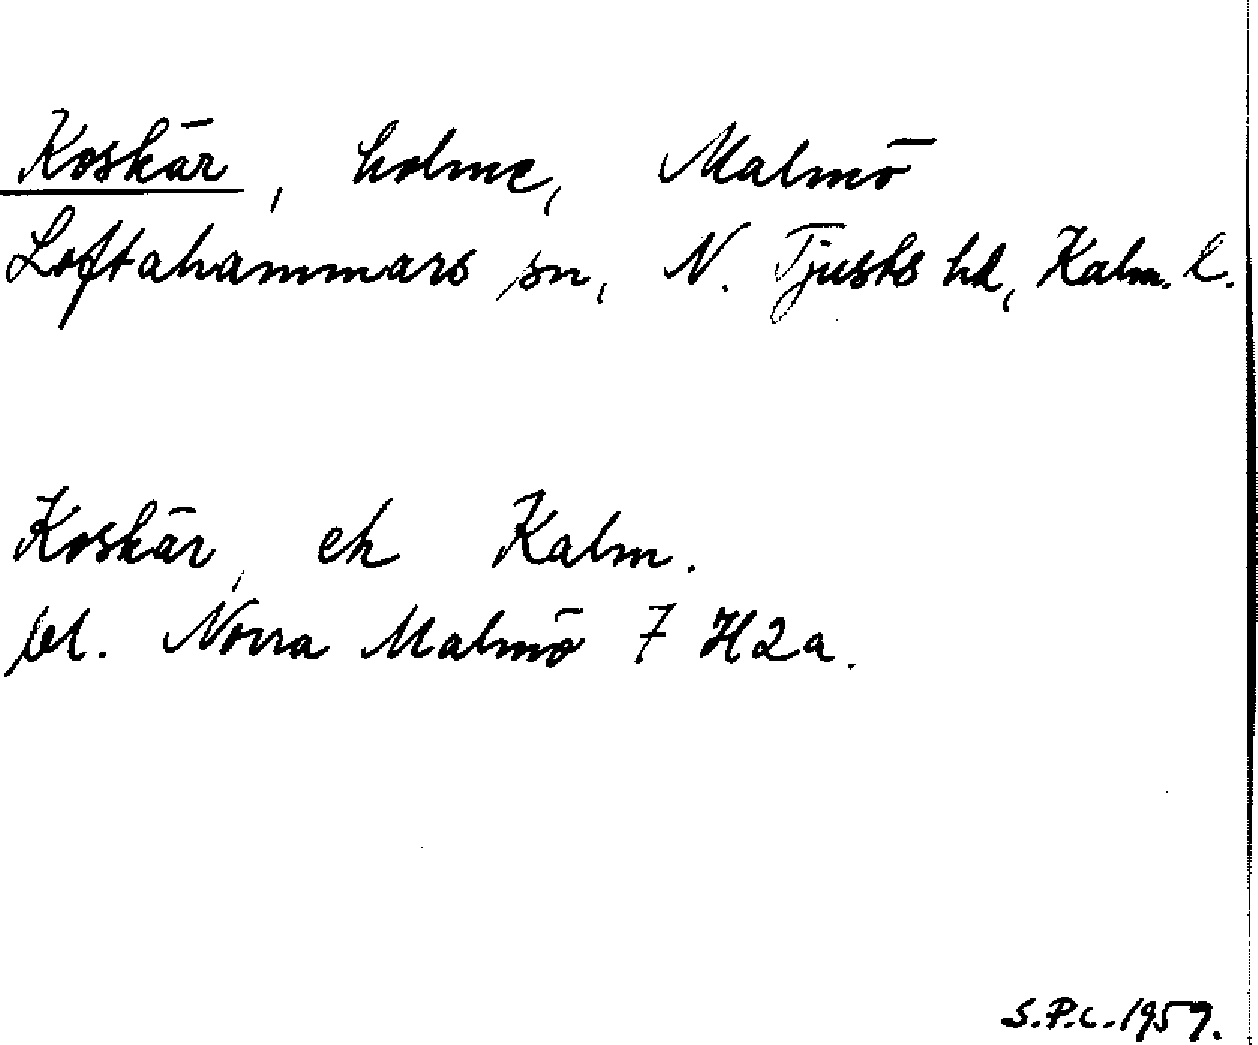 Koskär, holme, Malmö
Loftahammars sn, N. Tjusts hd, Kalm. l.
Koskär, ek Kalm.
bl. Norra Malmö 7 H2a.
S.P.C. 1959.